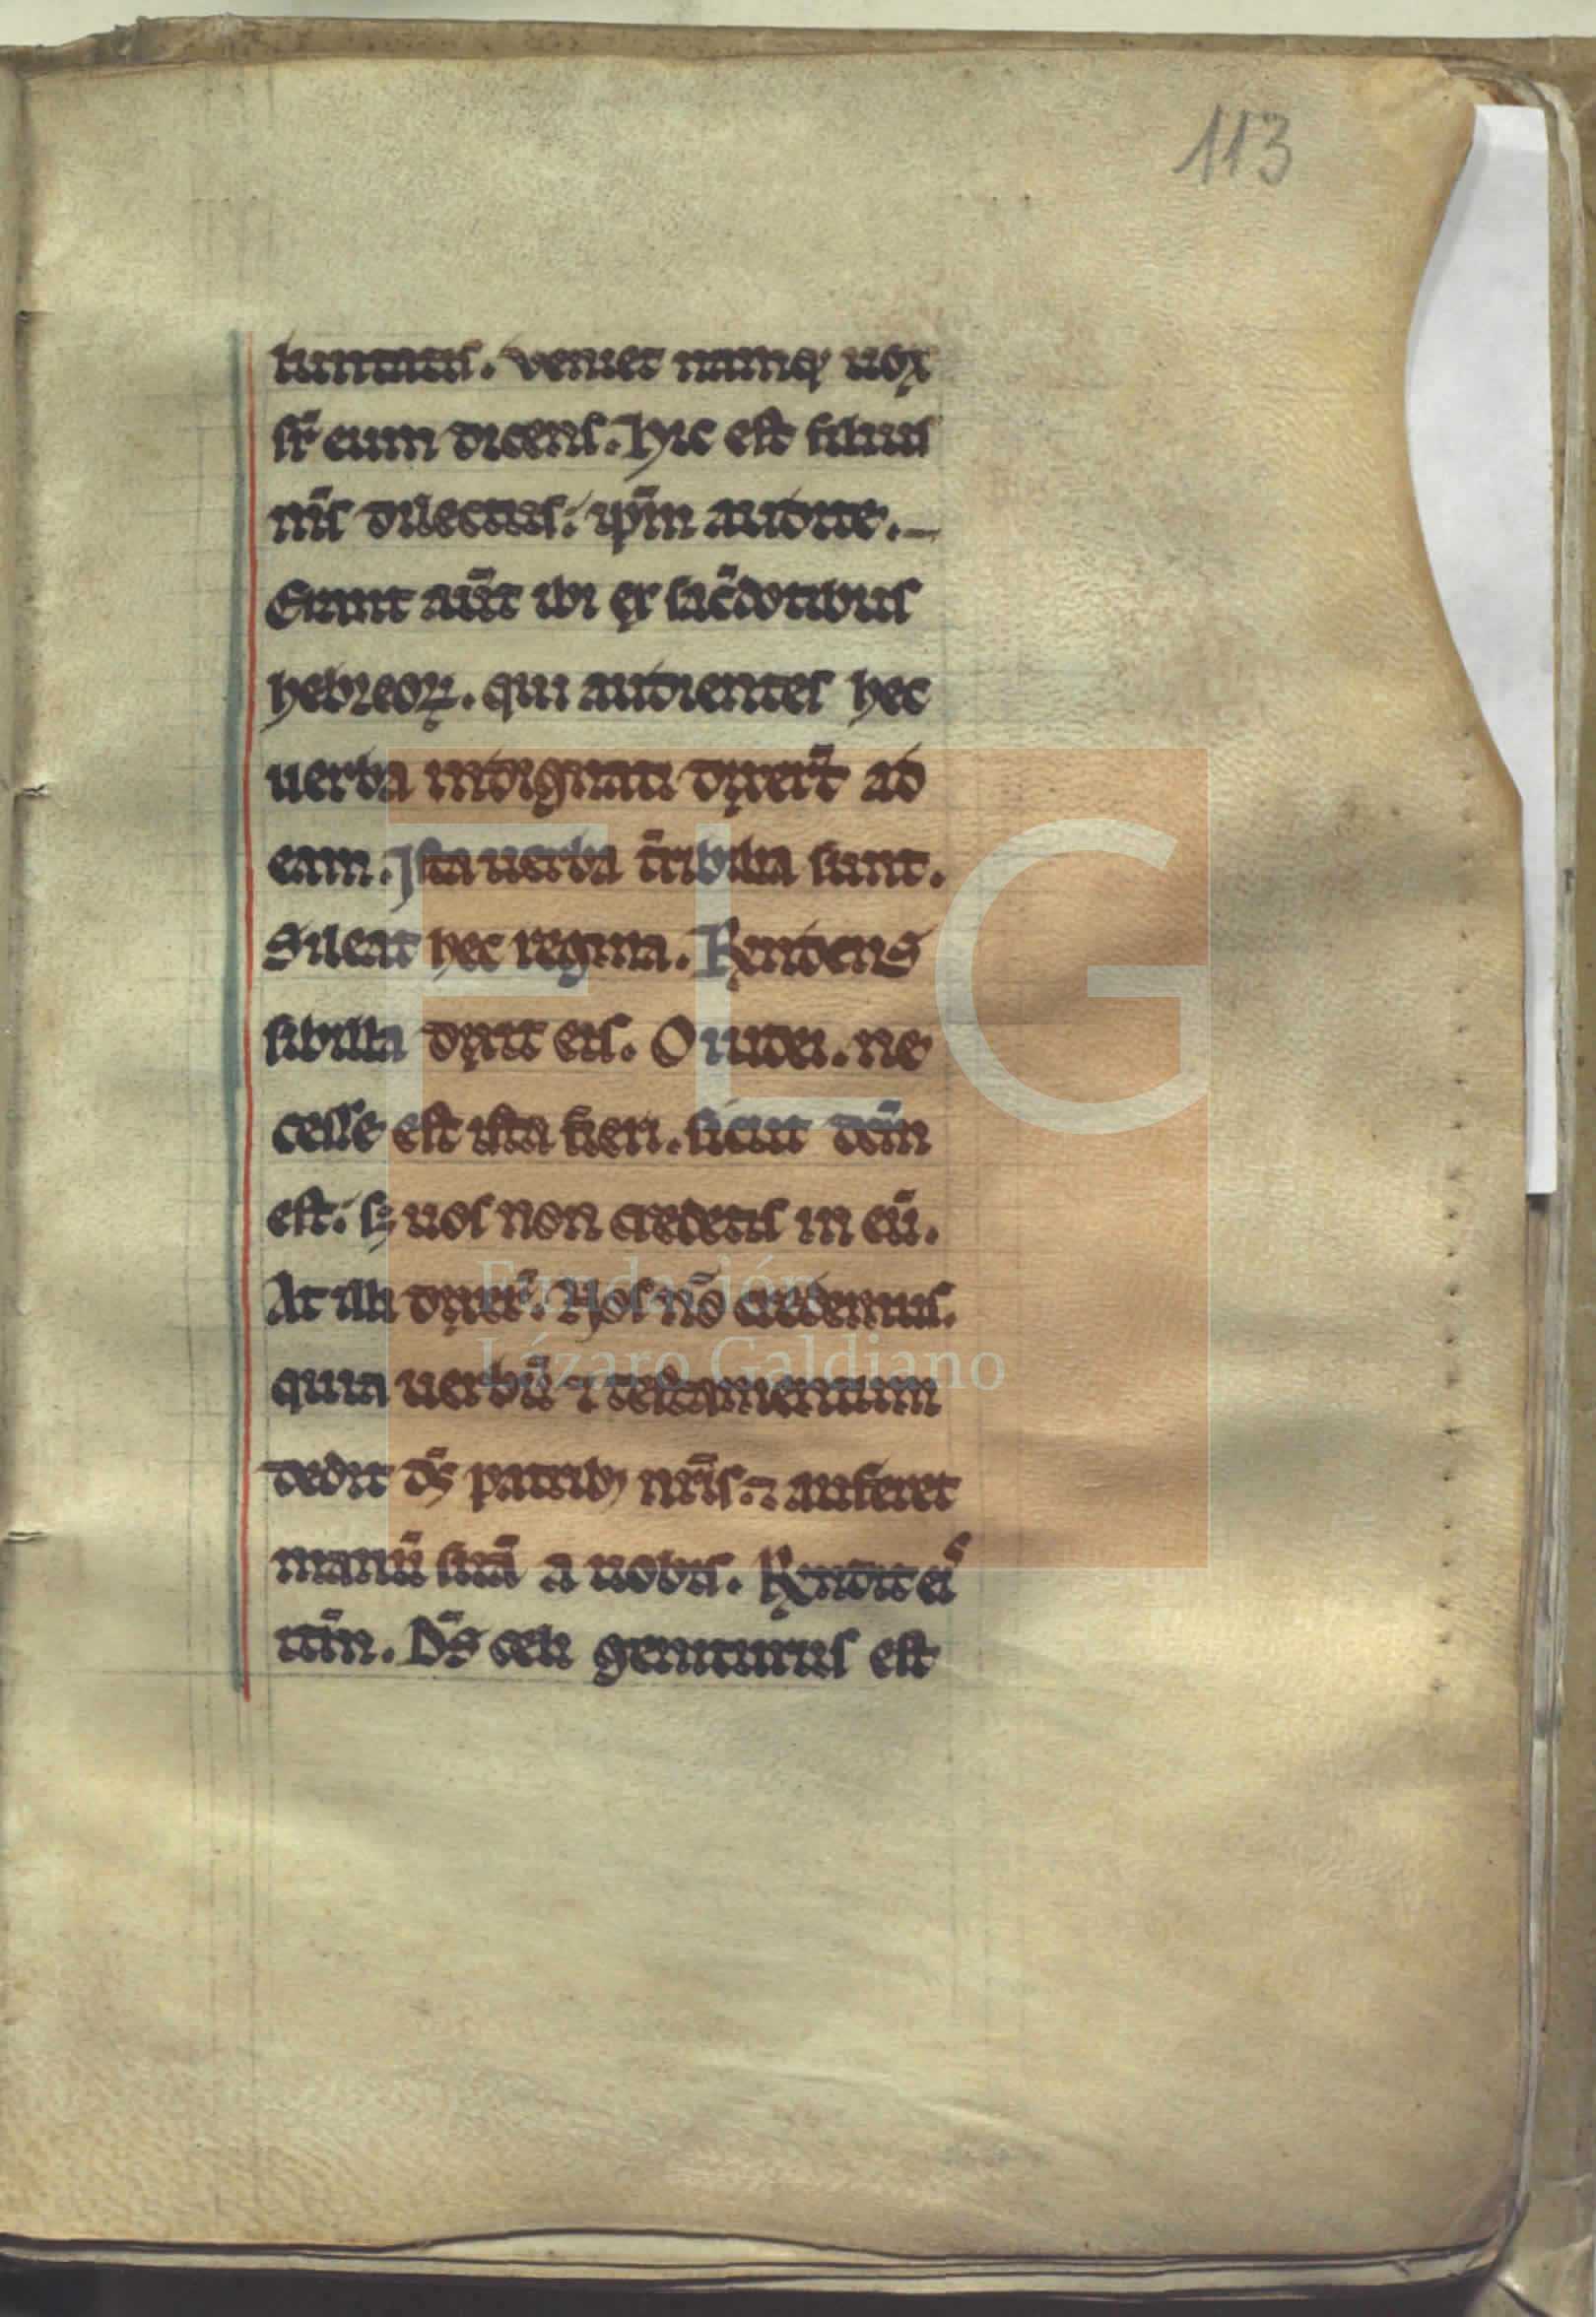 113
luntatis. Veniet namq; uox
sr̄ eum dicens. Hic est filius
m̄s dilectus. ip̄m audite.
Erant aūt ibi ex sac̄dotibus
hebreoꝝ. qui audientes hec
uerba indignati dixer̄t ad
eam. Ista uerba t̄ribilia sunt.
Sileat hec regina. Rn̄dens
sibilla dixit eis. O iudei. ne
cesse est ista fieri. sicut dc̄m
est. sꝫ uos non credetis in eū.
At illi dixer̄. Nos nō credemus.
quia uerbū ⁊ testamentum
dedit ds̄ patribꝫ nr̄is. ⁊ auferet
manū suā a nobis. Rn̄dit eis
itm̄. Ds̄ celi geniturus est
FLG
Fundación
Lázaro Galdiano